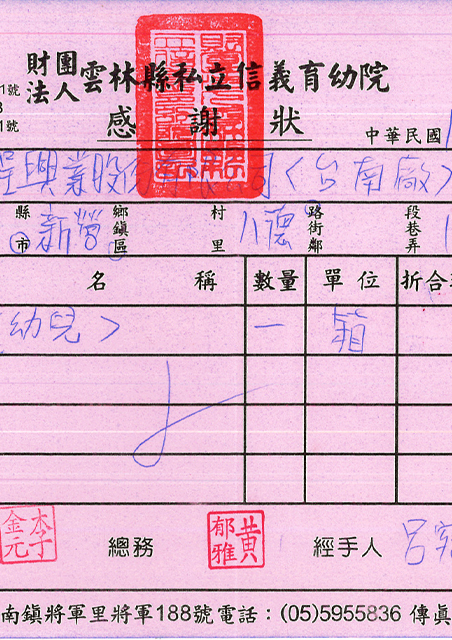 財團法人雲林縣私立信義育幼院
1號
3
1號
感謝狀
中華民國
興業股份有限公司〈台南廠〉
縣市 新營 鄉鎮區 村里 八德 路街鄰 段巷弄
名 稱 數量 單位 折合
幼兒〉 一 箱
總務 黃郁雅 經手人 呂
南鎮將軍里將軍188號電話：(05)5955836 傳真